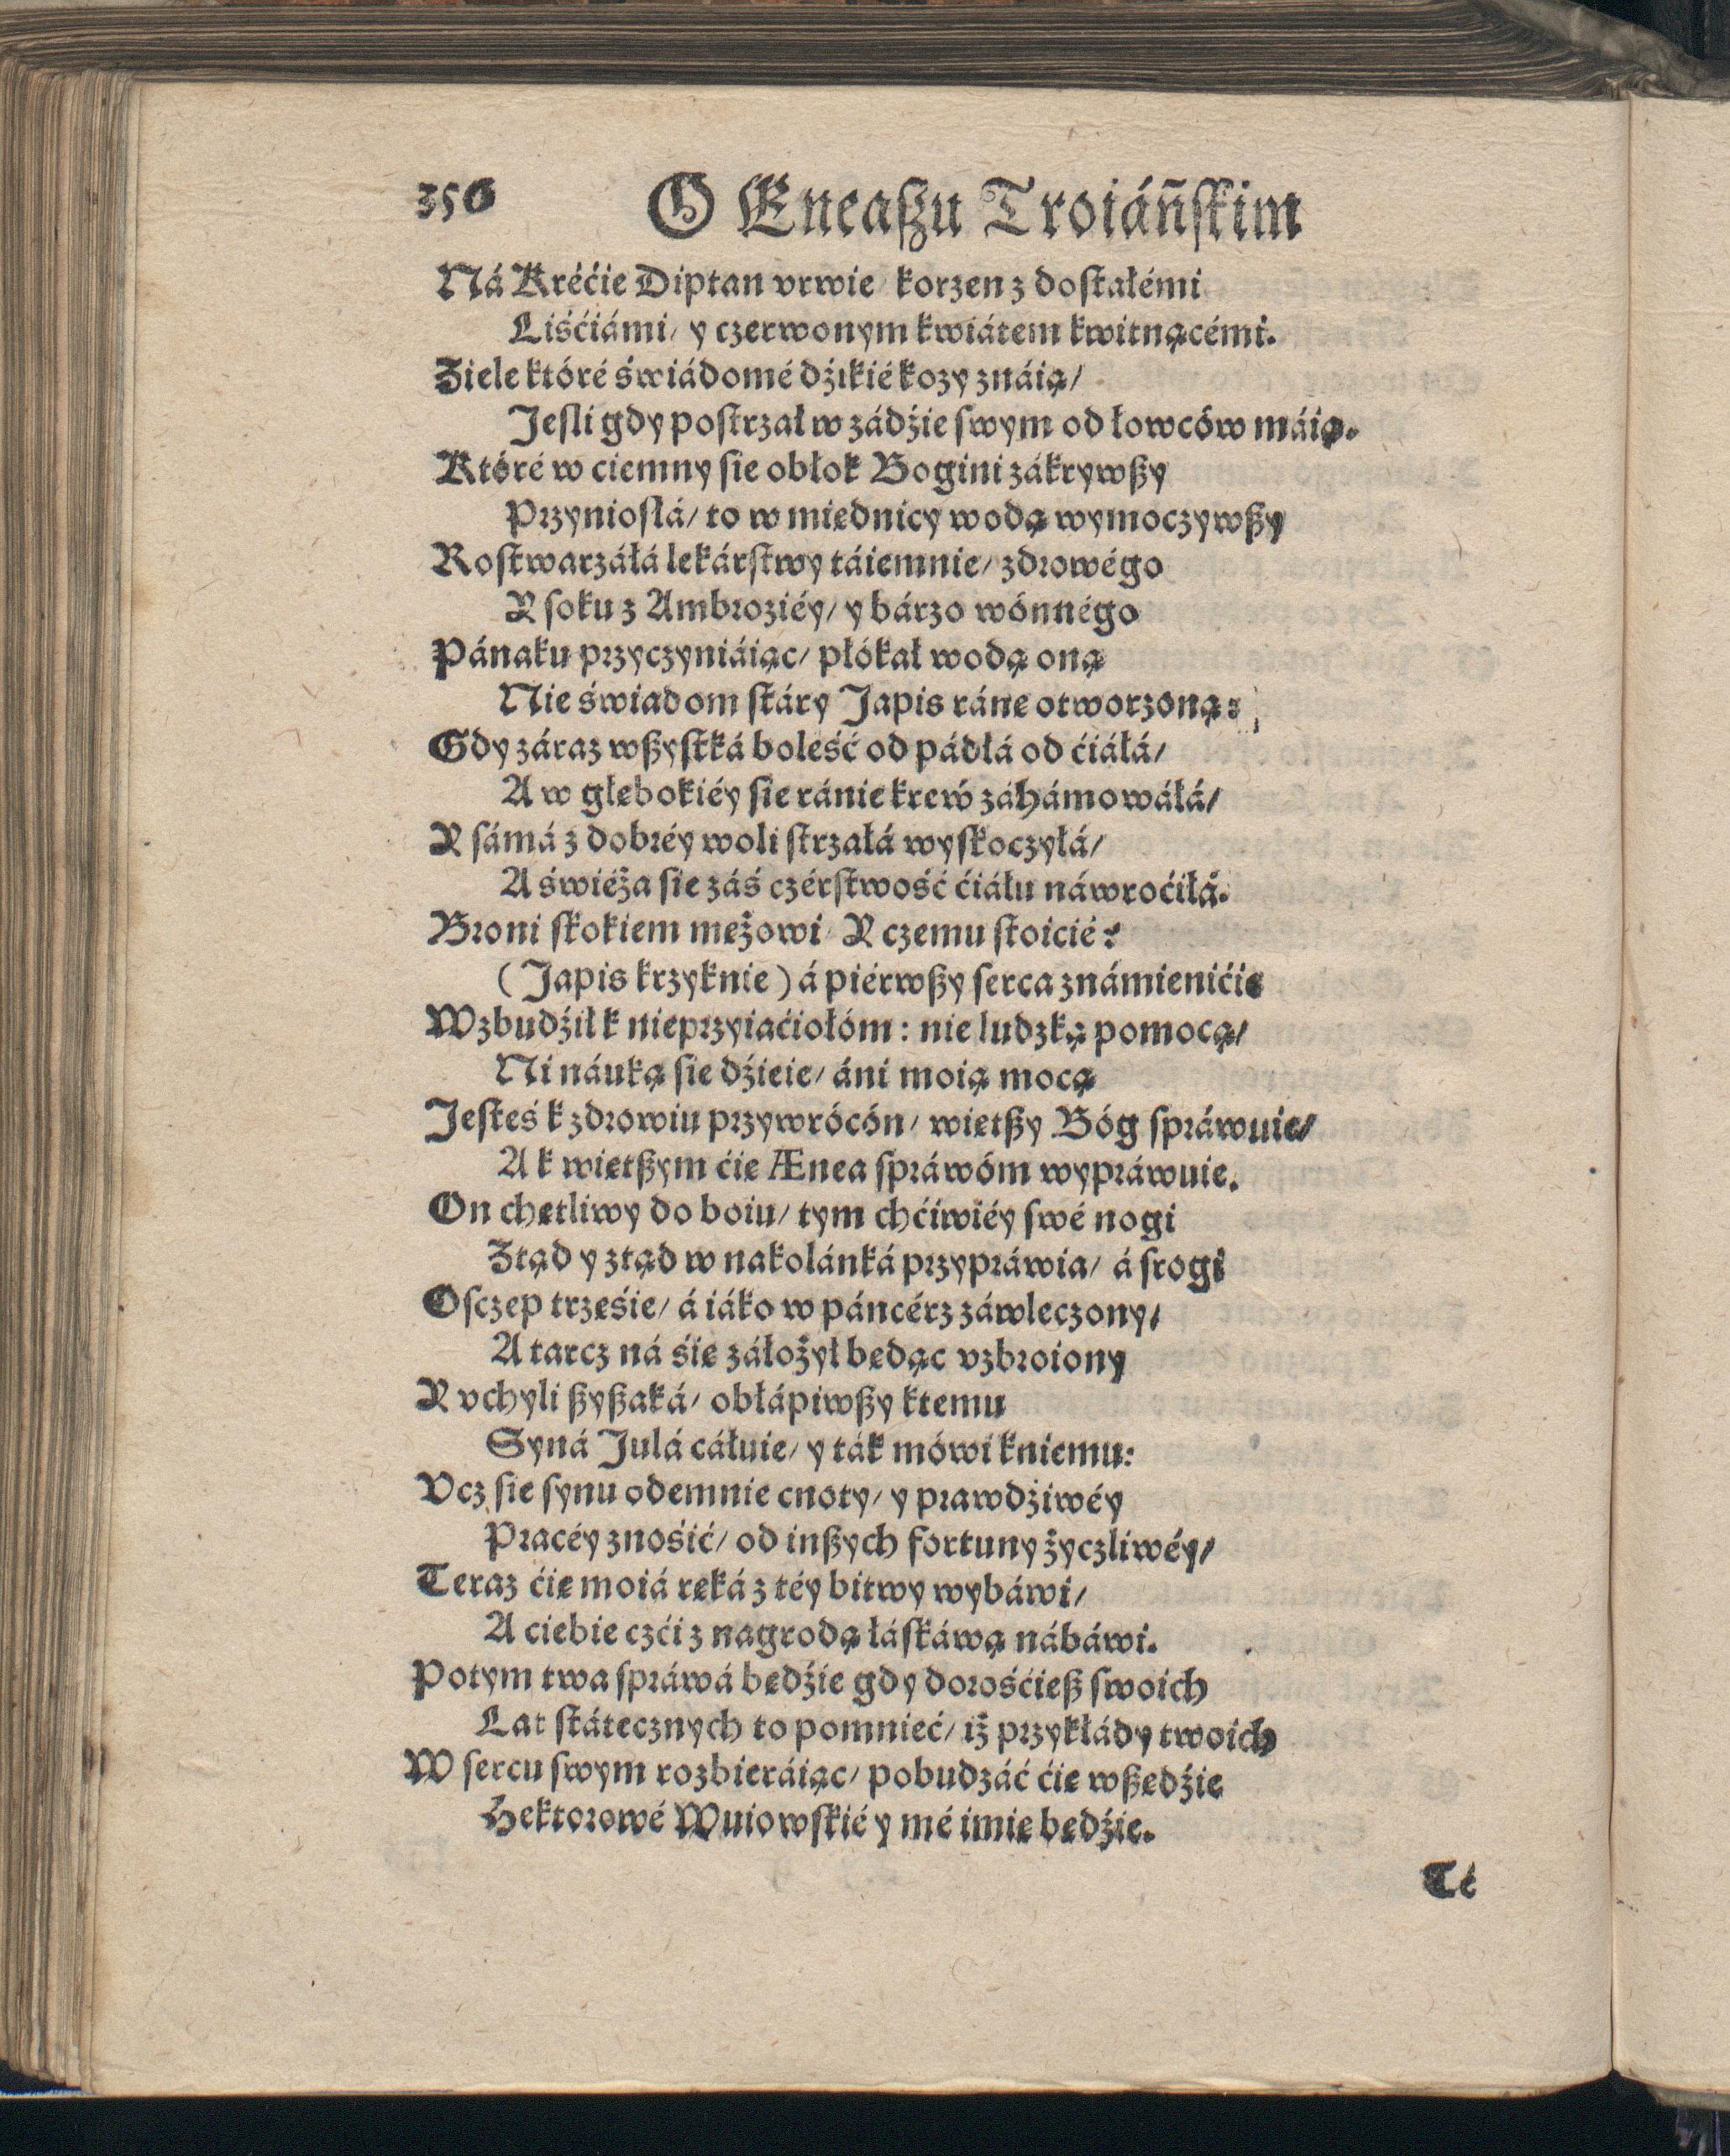 350 O Eneaßu Troiáńſkim
Ná Kréćie Diptan vrwie / korzen z doſtałémi
Liśćiámi / y czerwonym kwiátem kwitnącémi.
Ziele któré świádomé dźikié kozy znáią /
Jeſli gdy poſtrzał w zádźie ſwym od łowców máią.
Któré w ciemny ſie obłok Bogini zákrywßy
Przynioſłá / to w miednicy wodą wymoczywßy
Roſtwarzáłá lekárſtwy táiemnie / zdrowégo
Y ſoku z Ambroziéy / y bárzo wónnégo
Pánaku przyczyniáiąc / płókał wodą oną
Nie świadom ſtáry Japis ránę otworzoną:
Gdy záraz wßyſtká boleść od pádłá od ćiáłá /
A w głębokiéy ſie ránie krew záhámowáłá /
Y ſámá z dobréy woli ſtrzałá wyſkoczyłá /
A świéża ſie záś czérſtwość ćiáłu náwroćiłá.
Broni ſkokiem mężowi / Y czemu ſtoicié?
(Japis krzyknie) á piérwßy ſerca známienićie
Wzbudźił k nieprzyiaćiołóm: nie ludzką pomocą /
Ni náuką ſie dźieie / áni moią mocą
Jeſteś k zdrowiu przywrócón / więtßy Bóg ſpráwuie /
A k więtßym ćię Ænea ſpráwóm wypráwuie.
On chętliwy do boiu / tym chćiwiéy ſwé nogi
Ztąd y ztąd w nakolánká przypráwia / á ſrogi
Oſczep trzęśie / á iáko w páncérz záwleczony /
A tarcz ná śię záłożył będąc vzbroiony
Y vchyli ßyßaká / obłápiwßy ktemu
Syná Julá cáłuie / y ták mówi kniemu:
Vcz ſie ſynu odemnie cnoty / y prawdźiwéy
Pracéy znośić / od inßych fortuny życzliwéy /
Teraz ćię moiá ręká z téy bitwy wybáwi /
A ciebie czći z nagrodą łáſkáwą nábáwi.
Potym twa ſpráwá będźie gdy dorośćieß ſwoich
Lat ſtátecznych to pomnieć / iż przykłády twoich
W ſercu ſwym rozbieráiąc / pobudzáć ćię wßędźie
Hektorowé Wuiowſkié y mé imię będźie.
Té